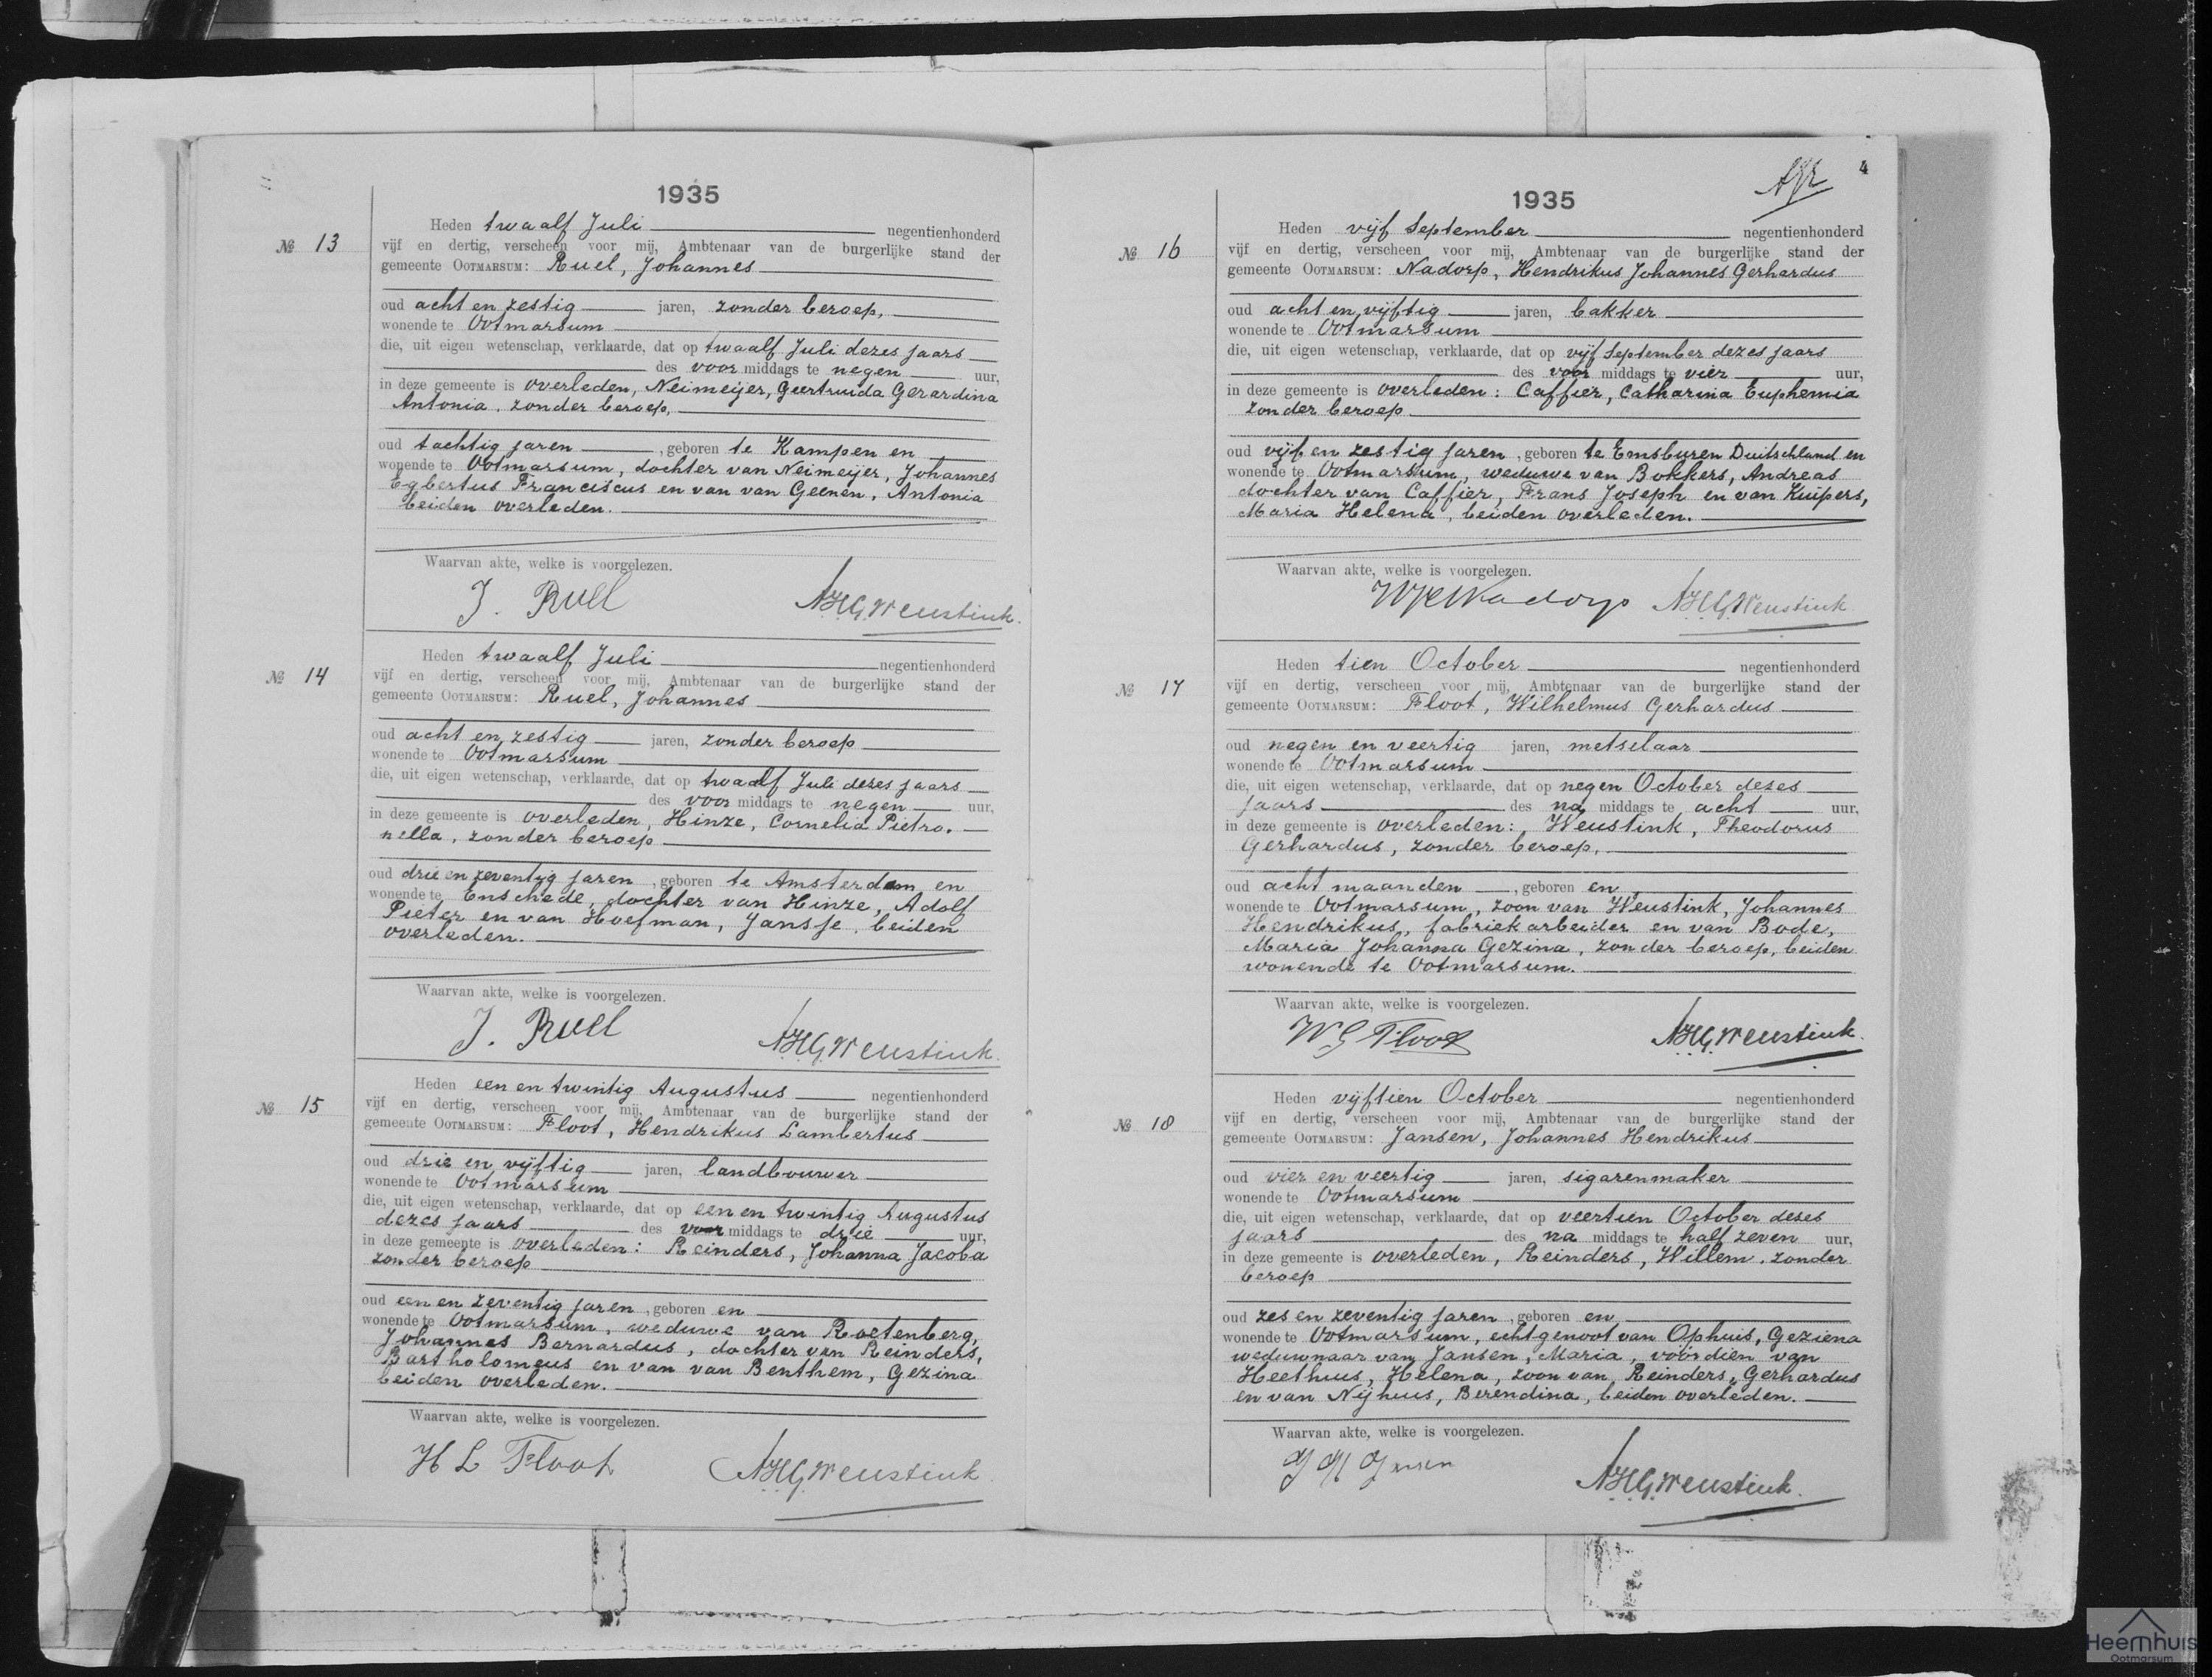 1935
№ 13
Heden twaalf Juli negentienhonderd
vijf en dertig, verscheen voor mij, Ambtenaar van de burgerlijke stand der
gemeente OOTMARSUM: Ruel, Johannes
oud acht en zestig jaren, zonder beroep,
wonende te Ootmarsum
die, uit eigen wetenschap, verklaarde, dat op twaalf Juli dezes jaars
des voor middags te negen uur,
in deze gemeente is overleden, Neimeijer, Geertruida Gerardina
Antonia, zonder beroep,
oud tachtig jaren, geboren te Kampen en
wonende te Ootmarsum, dochter van Neimeijer, Johannes
Egbertus Franciscus en van van Geenen, Antonia
beiden overleden.
Waarvan akte, welke is voorgelezen.
J. Ruel A.H.G. Weustink.
№ 14
Heden twaalf Juli negentienhonderd
vijf en dertig, verscheen voor mij, Ambtenaar van de burgerlijke stand der
gemeente OOTMARSUM: Ruel, Johannes
oud acht en zestig jaren, zonder beroep
wonende te Ootmarsum
die, uit eigen wetenschap, verklaarde, dat op twaalf Juli dezes jaars
des voor middags te negen uur,
in deze gemeente is overleden, Hinze, Cornelia Pietro.
nella, zonder beroep
oud drie en zeventig jaren, geboren te Amsterdam en
wonende te Enschede, dochter van Hinze, Adolf
Pieter en van Hoefman, Jansje, beiden
overleden.
Waarvan akte, welke is voorgelezen.
J. Ruel A.H.G. Weustink.
№ 15
Heden een en twintig Augustus negentienhonderd
vijf en dertig, verscheen voor mij, Ambtenaar van de burgerlijke stand der
gemeente OOTMARSUM: Floot, Hendrikus Lambertus
oud drie en vijftig jaren, landbouwer
wonende te Ootmarsum
die, uit eigen wetenschap, verklaarde, dat op een en twintig Augustus
dezes jaars des voor middags te drie uur,
in deze gemeente is overleden: Reinders, Johanna Jacoba
zonder beroep
oud een en zeventig jaren, geboren en
wonende te Ootmarsum, weduwe van Roetenberg,
Johannes Bernardus, dochter van Reinders,
Bartholomeus en van van Benthem, Gezina
beiden overleden.
Waarvan akte, welke is voorgelezen.
H L Floot A.H.G. Weustink.
4
1935
№ 16
Heden vijf September negentienhonderd
vijf en dertig, verscheen voor mij, Ambtenaar van de burgerlijke stand der
gemeente OOTMARSUM: Nadorp, Hendrikus Johannes Gerhardus
oud acht en vijftig jaren, bakker
wonende te Ootmarsum
die, uit eigen wetenschap, verklaarde, dat op vijf September dezes jaars
des voor middags te vier uur,
in deze gemeente is overleden: Caffier, Catharina Euphemia
zonder beroep
oud vijf en zestig jaren, geboren te Emsburen Duitschland en
wonende te Ootmarsum, weduwe van Bokkers, Andreas
dochter van Caffier, Frans Joseph en van Kuipers,
Maria Helena, beiden overleden.
Waarvan akte, welke is voorgelezen.
Nadorp A.H.G. Weustink.
№ 17
Heden tien October negentienhonderd
vijf en dertig, verscheen voor mij, Ambtenaar van de burgerlijke stand der
gemeente OOTMARSUM: Floot, Wilhelmus Gerhardus
oud negen en veertig jaren, metselaar
wonende te Ootmarsum
die, uit eigen wetenschap, verklaarde, dat op negen October dezes
jaars des na middags te acht uur,
in deze gemeente is overleden: Weustink, Theodorus
Gerhardus, zonder beroep,
oud acht maanden, geboren en
wonende te Ootmarsum, zoon van Weustink, Johannes
Hendrikus, fabriekarbeider en van Bode,
Maria Johanna Gezina, zonder beroep, beiden
wonende te Ootmarsum.
Waarvan akte, welke is voorgelezen.
W G Floot A.H.G. Weustink.
№ 18
Heden vijftien October negentienhonderd
vijf en dertig, verscheen voor mij, Ambtenaar van de burgerlijke stand der
gemeente OOTMARSUM: Jansen, Johannes Hendrikus
oud vier en veertig jaren, sigarenmaker
wonende te Ootmarsum
die, uit eigen wetenschap, verklaarde, dat op veertien October dezes
jaars des na middags te half zeven uur,
in deze gemeente is overleden, Reinders, Willem, zonder
beroep
oud zes en zeventig jaren, geboren en
wonende te Ootmarsum, echtgenoot van Ophuis, Geziena
weduwnaar van Jansen, Maria, voordien van
Heethuis, Helena, zoon van Reinders, Gerhardus
en van Nijhuis, Berendina, beiden overleden.
Waarvan akte, welke is voorgelezen.
J H Jansen A.H.G. Weustink.
Heemhuis
Ootmarsum